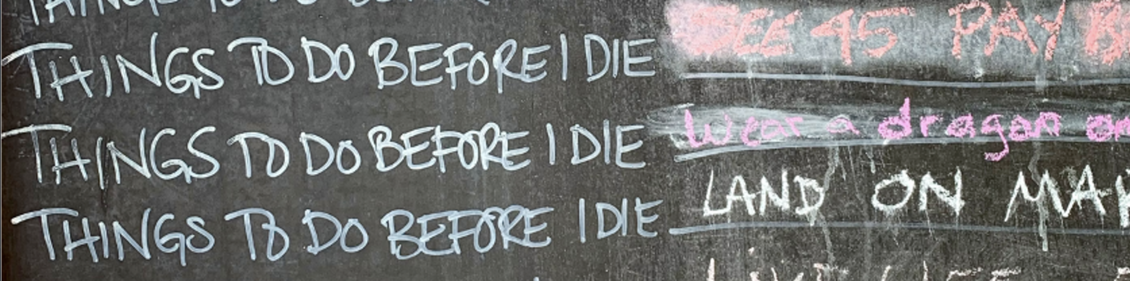 THINGS TO DO BEFORE I DIE SEE 45 PAY
THINGS TO DO BEFORE I DIE Wear a dragon
THINGS TO DO BEFORE I DIE LAND ON